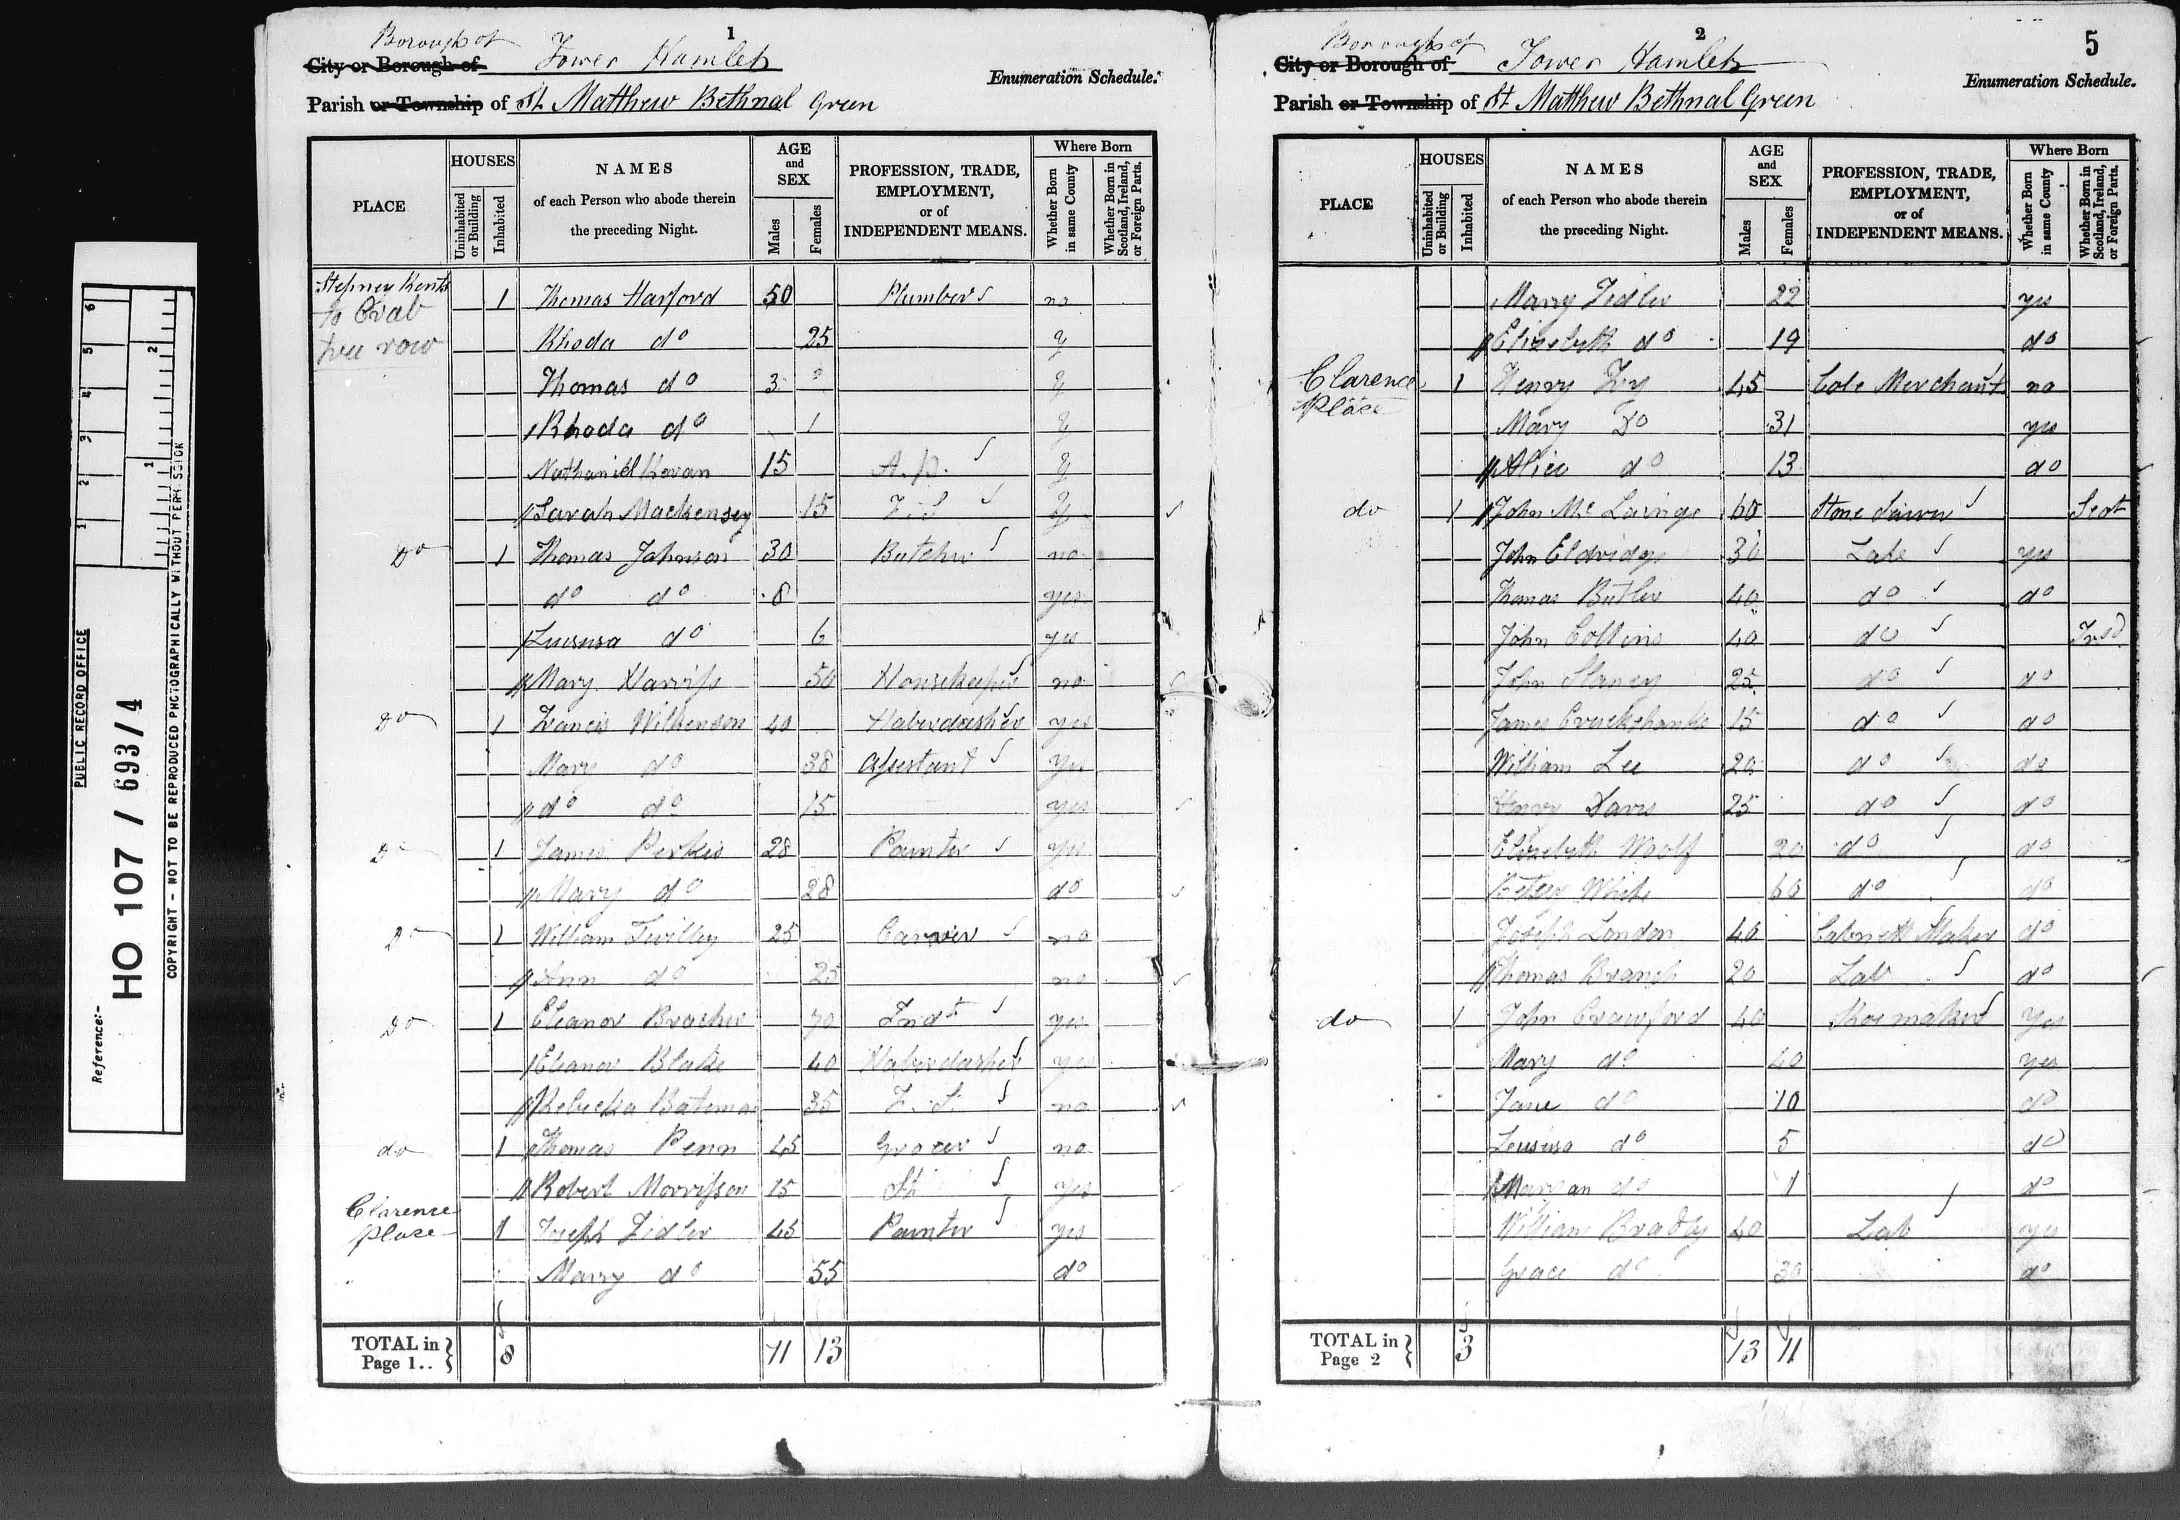 PUBLIC RECORD OFFICE
Reference:-
HO 107 / 693/4
COPYRIGHT - NOT TO BE REPRODUCED PHOTOGRAPHICALLY WITHOUT PERMISSION
1
Borough of
City or Borough of Tower Hamlets
Enumeration Schedule.
Parish or Township of St. Matthew Bethnal Green
PLACE
HOUSES
Uninhabited or Building
Inhabited
NAMES
of each Person who abode therein
the preceding Night.
AGE and SEX
Males
Females
PROFESSION, TRADE, EMPLOYMENT, or of INDEPENDENT MEANS.
Where Born
Whether Born in same County
Whether Born in Scotland, Ireland, or Foreign Parts.
1 Thomas Harford 50 Plumber no
to Crab tree row
Rhoda do 25 y
Thomas do 3 y
Rhoda do 1 y
Nathaniel 15 A.p. y
Sarah Mackensey 15 F.S y
Do 1 Thomas Johnson 30 Butcher no
do do 8 yes
Luisusa do 6 yes
Mary Harriss 50 Housekeeper no
Do 1 Francis Wilkenson 40 Haberdasher yes
Mary do 38 Assistant yes
do do 15 yes
Do 1 James Perkis 28 Painter yes
Mary do 28 do
Do 1 William 25 Carver no
Ann do 25 no
Do 1 Eleanor 70 Indt yes
Eleanor Blake 40 Haberdasher yes
Rebecka Bateman 35 F.S. no
do 1 Thomas Penn 45 Grocer no
Robert Morrisson 15 Sh yes
Clarence place 1 Joseph Fidler 45 Painter yes
Marry do 55 do
TOTAL in Page 1.. 8 11 13
2
5
Borough of
City or Borough of Tower Hamlets
Enumeration Schedule.
Parish or Township of St. Matthew Bethnal Green
PLACE
HOUSES
Uninhabited or Building
Inhabited
NAMES
of each Person who abode therein
the preceding Night.
AGE and SEX
Males
Females
PROFESSION, TRADE, EMPLOYMENT, or of INDEPENDENT MEANS.
Where Born
Whether Born in same County
Whether Born in Scotland, Ireland, or Foreign Parts.
Marry Fidler 22 yes
Elizebeth do 19 do
Clarence place 1 Henry Fry 45 Cole Merchant no
Mary Do 31 yes
Alice do 13 do
do 1 John Mc 60 Stone Scot
John Eldridge 30 Lab yes
Thomas Butler 40 do do
John Collins 40 do Ired
John Slaney 25 do do
James 15 do do
William Lee 20 do do
Henry Davis 25 do do
Elizebeth Woolf 20 do do
White 60 do do
Joseph London 40 Cabinett Maker do
Thomas Branch 20 Lab do
do 1 John Crawford 40 Shoemaker yes
Mary do 40 yes
Jane do 10 do
Leusisa do 5 do
Maryan do 1 do
William Bradly 40 Lab yes
Grace do 30 do
TOTAL in Page 2 3 13 11